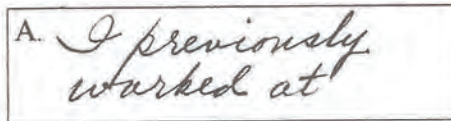 A. I previously
worked at